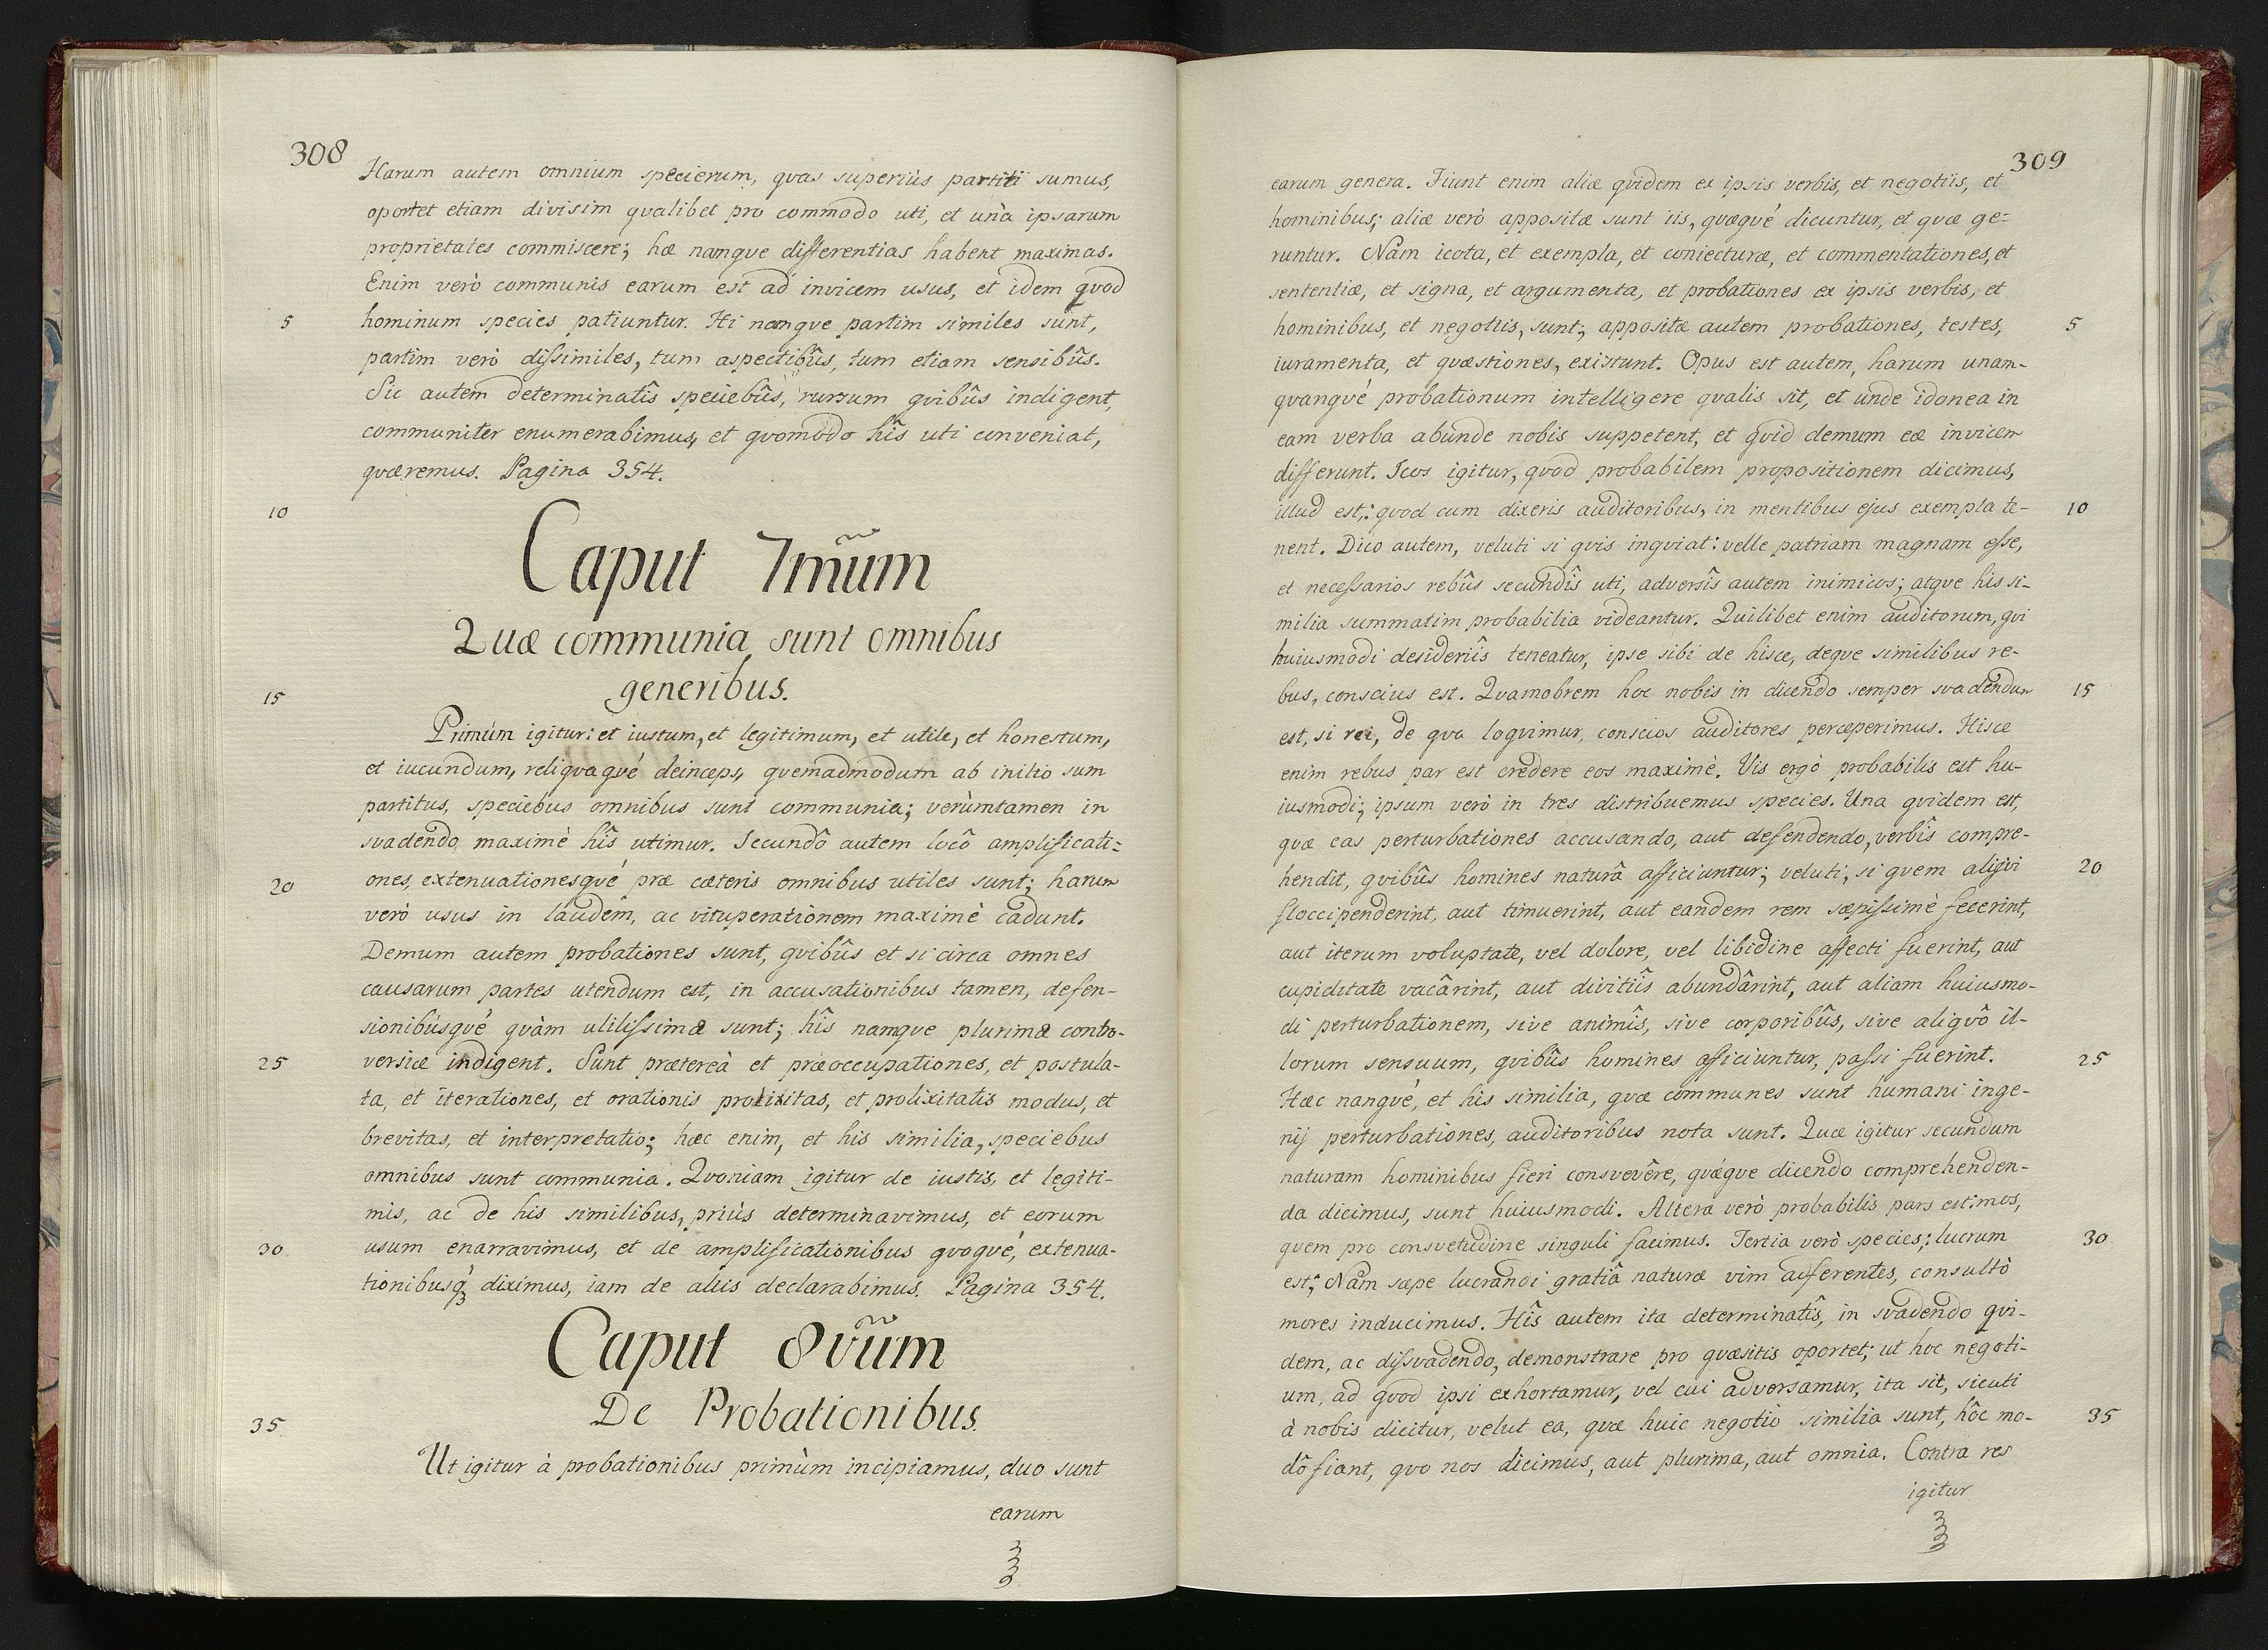 308
Harum autem omnium specierum, qvas superiùs partiti sumus,
oportet etiam divisim qvalibet pro commodo uti, et unà ipsarum
proprietates commiscere; hæ namqve differentias habent maximas.
Enim verò communis earum est ad invicem usus, et idem qvod
5 hominum species patiuntur. Hi namqve partim similes sunt,
partim verò dissimiles, tum aspectibûs, tum etiam sensibûs.
Sic autem determinatîs speciebûs, rursum qvibûs indigent,
communiter enumerabimus, et qvomodo hîs uti conveniat,
qværemus. Pagina 354.
10
Caput 7mum
Quæ communia sunt omnibus
15 generibus.
Primùm igitur: et iustum, et legitimum, et utile, et honestum,
et iucundum, reliqvaqvé deinceps, qvemadmodum ab initio sum
partitus, speciebus omnibus sunt communia; verùmtamen in
svadendo maximè hîs utimur. Secundô autem locô amplificati=
20 ones, extenuationesqvé præ cæteris omnibus utiles sunt; harum
verò usus in laudem, ac vituperationem maximè cadunt.
Demum autem probationes sunt, qvibûs et si circa omnes
causarum partes utendum est, in accusationibus tamen, defen-
sionibùsqvé qvàm utilissimæ sunt; hîs namqve plurimæ contro-
25 versiæ indigent. Sunt prætereà et præoccupationes, et postula-
ta, et iterationes, et orationis prolixitas, et prolixitatis modus, et
brevitas, et interpretatio; hæc enim, et his similia, speciebus
omnibus sunt communia. Qvoniam igitur de iustis, et legiti-
mis, ac de his similibus, priùs determinavimus, et eorum
30 usum enarravimus, et de amplificationibus qvoqvé, extenua-
tionibusq₃ diximus, iam de aliis declarabimus. Pagina 354.
Caput 8vum
35 De Probationibus.
Ut igitur à probationibus primùm incipiamus, duo sunt
earum
309
earum genera. Fiunt enim aliæ qvidem ex ipsis verbis, et negotiis, et
hominibus; aliæ verò appositæ sunt iis, qvæqvé dicuntur, et qvæ ge=
runtur. Nam icota, et exempla, et coniecturæ, et commentationes, et
sententiæ, et signa, et argumenta, et probationes ex ipsis verbis, et
hominibus, et negotiis, sunt; appositæ autem probationes, testes, 5
iuramenta, et qvæstiones, existunt. Opus est autem, harum unam-
qvanqvé probationum intelligere qvalis sit, et unde idonea in
eam verba abunde nobis suppetent, et qvid demum eæ invicem
differunt. Icos igitur, qvod probabilem propositionem dicimus,
illud est,: qvod cum dixeris auditoribus, in mentibus ejus exempla te- 10
nent. Dico autem, veluti si qvis inqviat: velle patriam magnam esse,
et necessarios rebûs secundîs uti, adversîs autem inimicos; atqve his si-
milia summatim probabilia videantur. Quilibet enim auditorum, qvi
huiusmodi desideriîs teneatur, ipse sibi de hisce, deqve similibus re-
bus, conscius est. Qvamobrem hoc nobis in dicendo semper svadendum 15
est, si rei, de qva loqvimur, conscios auditores perceperimus. Hisce
enim rebus par est credere eos maximè. Vis ergò probabilis est hu-
iusmodi; ipsum verò in tres distribuemus species. Una qvidem est,
qvæ eas perturbationes accusando, aut defendendo, verbîs compre-
hendit, qvibûs homines naturâ afficiuntur; veluti, si qvem aliqvi 20
floccipenderint, aut timuerint, aut eandem rem sæpissimè fecerint,
aut iterum voluptate, vel dolore, vel libidine affecti fuerint, aut
cupiditate vacârint, aut divitiîs abundârint, aut aliam huiusmo-
di perturbationem, sive animîs, sive corporibûs, sive aliqvô il-
lorum sensuum, qvibûs homines afficiuntur, passi fuerint. 25
Hæc nanqvé, et his similia, qvæ communes sunt humani inge-
nij perturbationes, auditoribus nota sunt. Quæ igitur secundum
naturam hominibus fieri consvevêre, qvæqve dicendo comprehenden-
da dicimus, sunt huiusmodi. Altera verò probabilis pars est: mos,
qvem pro consvetudine singuli facimus. Tertia verò species,: lucrum 30
est; Nam sæpe lucrandi gratiâ naturæ vim afferentes, consultò
mores inducimus. Hîs autem ita determinatîs, in svadendo qvi-
dem, ac dissvadendo, demonstrare pro qvæsitis oportet; ut hoc negoti-
um, ad qvod ipsi exhortamur, vel cui adversamur, ita sit, sicuti
à nobis dicitur, velut ea, qvæ huic negotio similia sunt, hôc mo- 35
dô fiant, qvo nos dicimus, aut plurima, aut omnia. Contra res
igitur